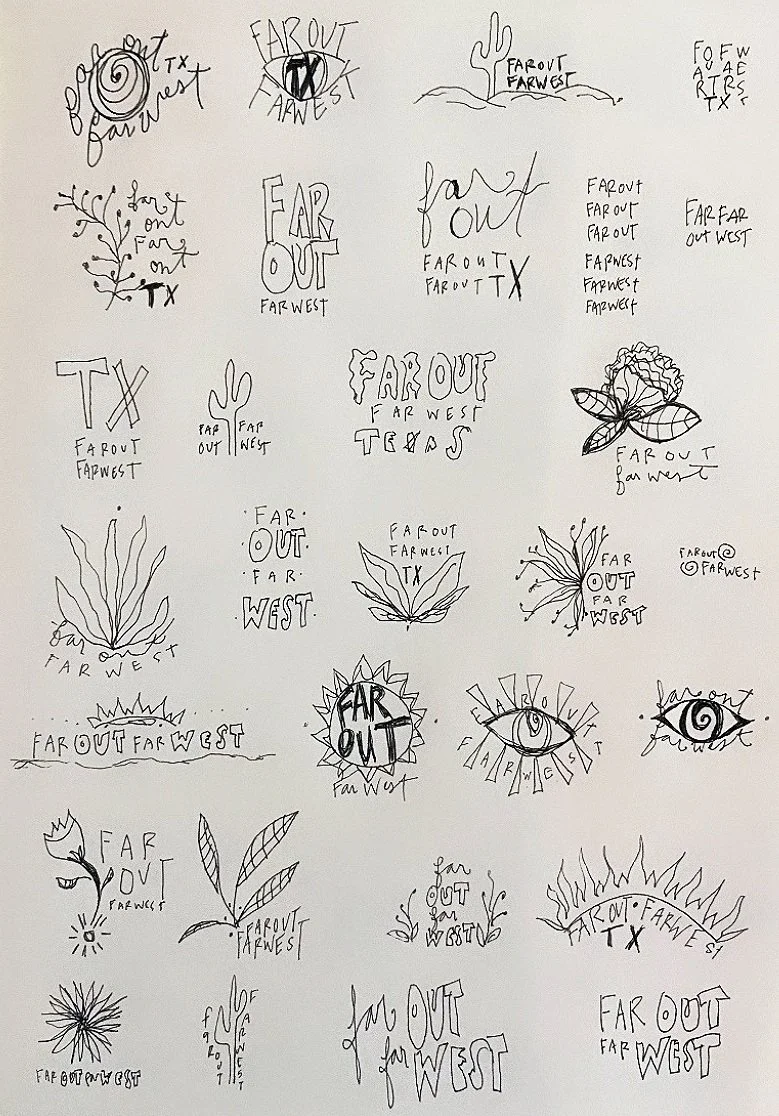 far out TX
far west
FAR OUT
TX
FARWEST
FAROUT
FARWEST
FOFW
AUAE
RTRS
TXT
far
out
Far
out
TX
FAR
OUT
FARWEST
far
out
FAROUT
FAROUT TX
FAROUT
FAROUT
FAROUT
FARWEST
FARWEST
FARWEST
FAR FAR
OUT WEST
TX
FAROUT
FARWEST
FAR FAR
OUT WEST
FAR OUT
FAR WEST
TEXAS
FAR OUT
far west
far out
FAR WEST
·FAR·
·OUT·
·FAR·
·WEST·
FAR OUT
FARWEST
TX
FAR
OUT
FAR
WEST
FAROUT
FARWEST
FAR OUT FAR WEST
FAR
OUT
Far West
FAR OUT
FAR WEST
far out
far west
FAR
OUT
FARWEST
FAROUT
FARWEST
far
OUT
far
WEST
FAR OUT·FARWEST
TX
FAR OUT FAR WEST
farOUT
FARWEST
far OUT
far WEST
FAR OUT
FAR WEST